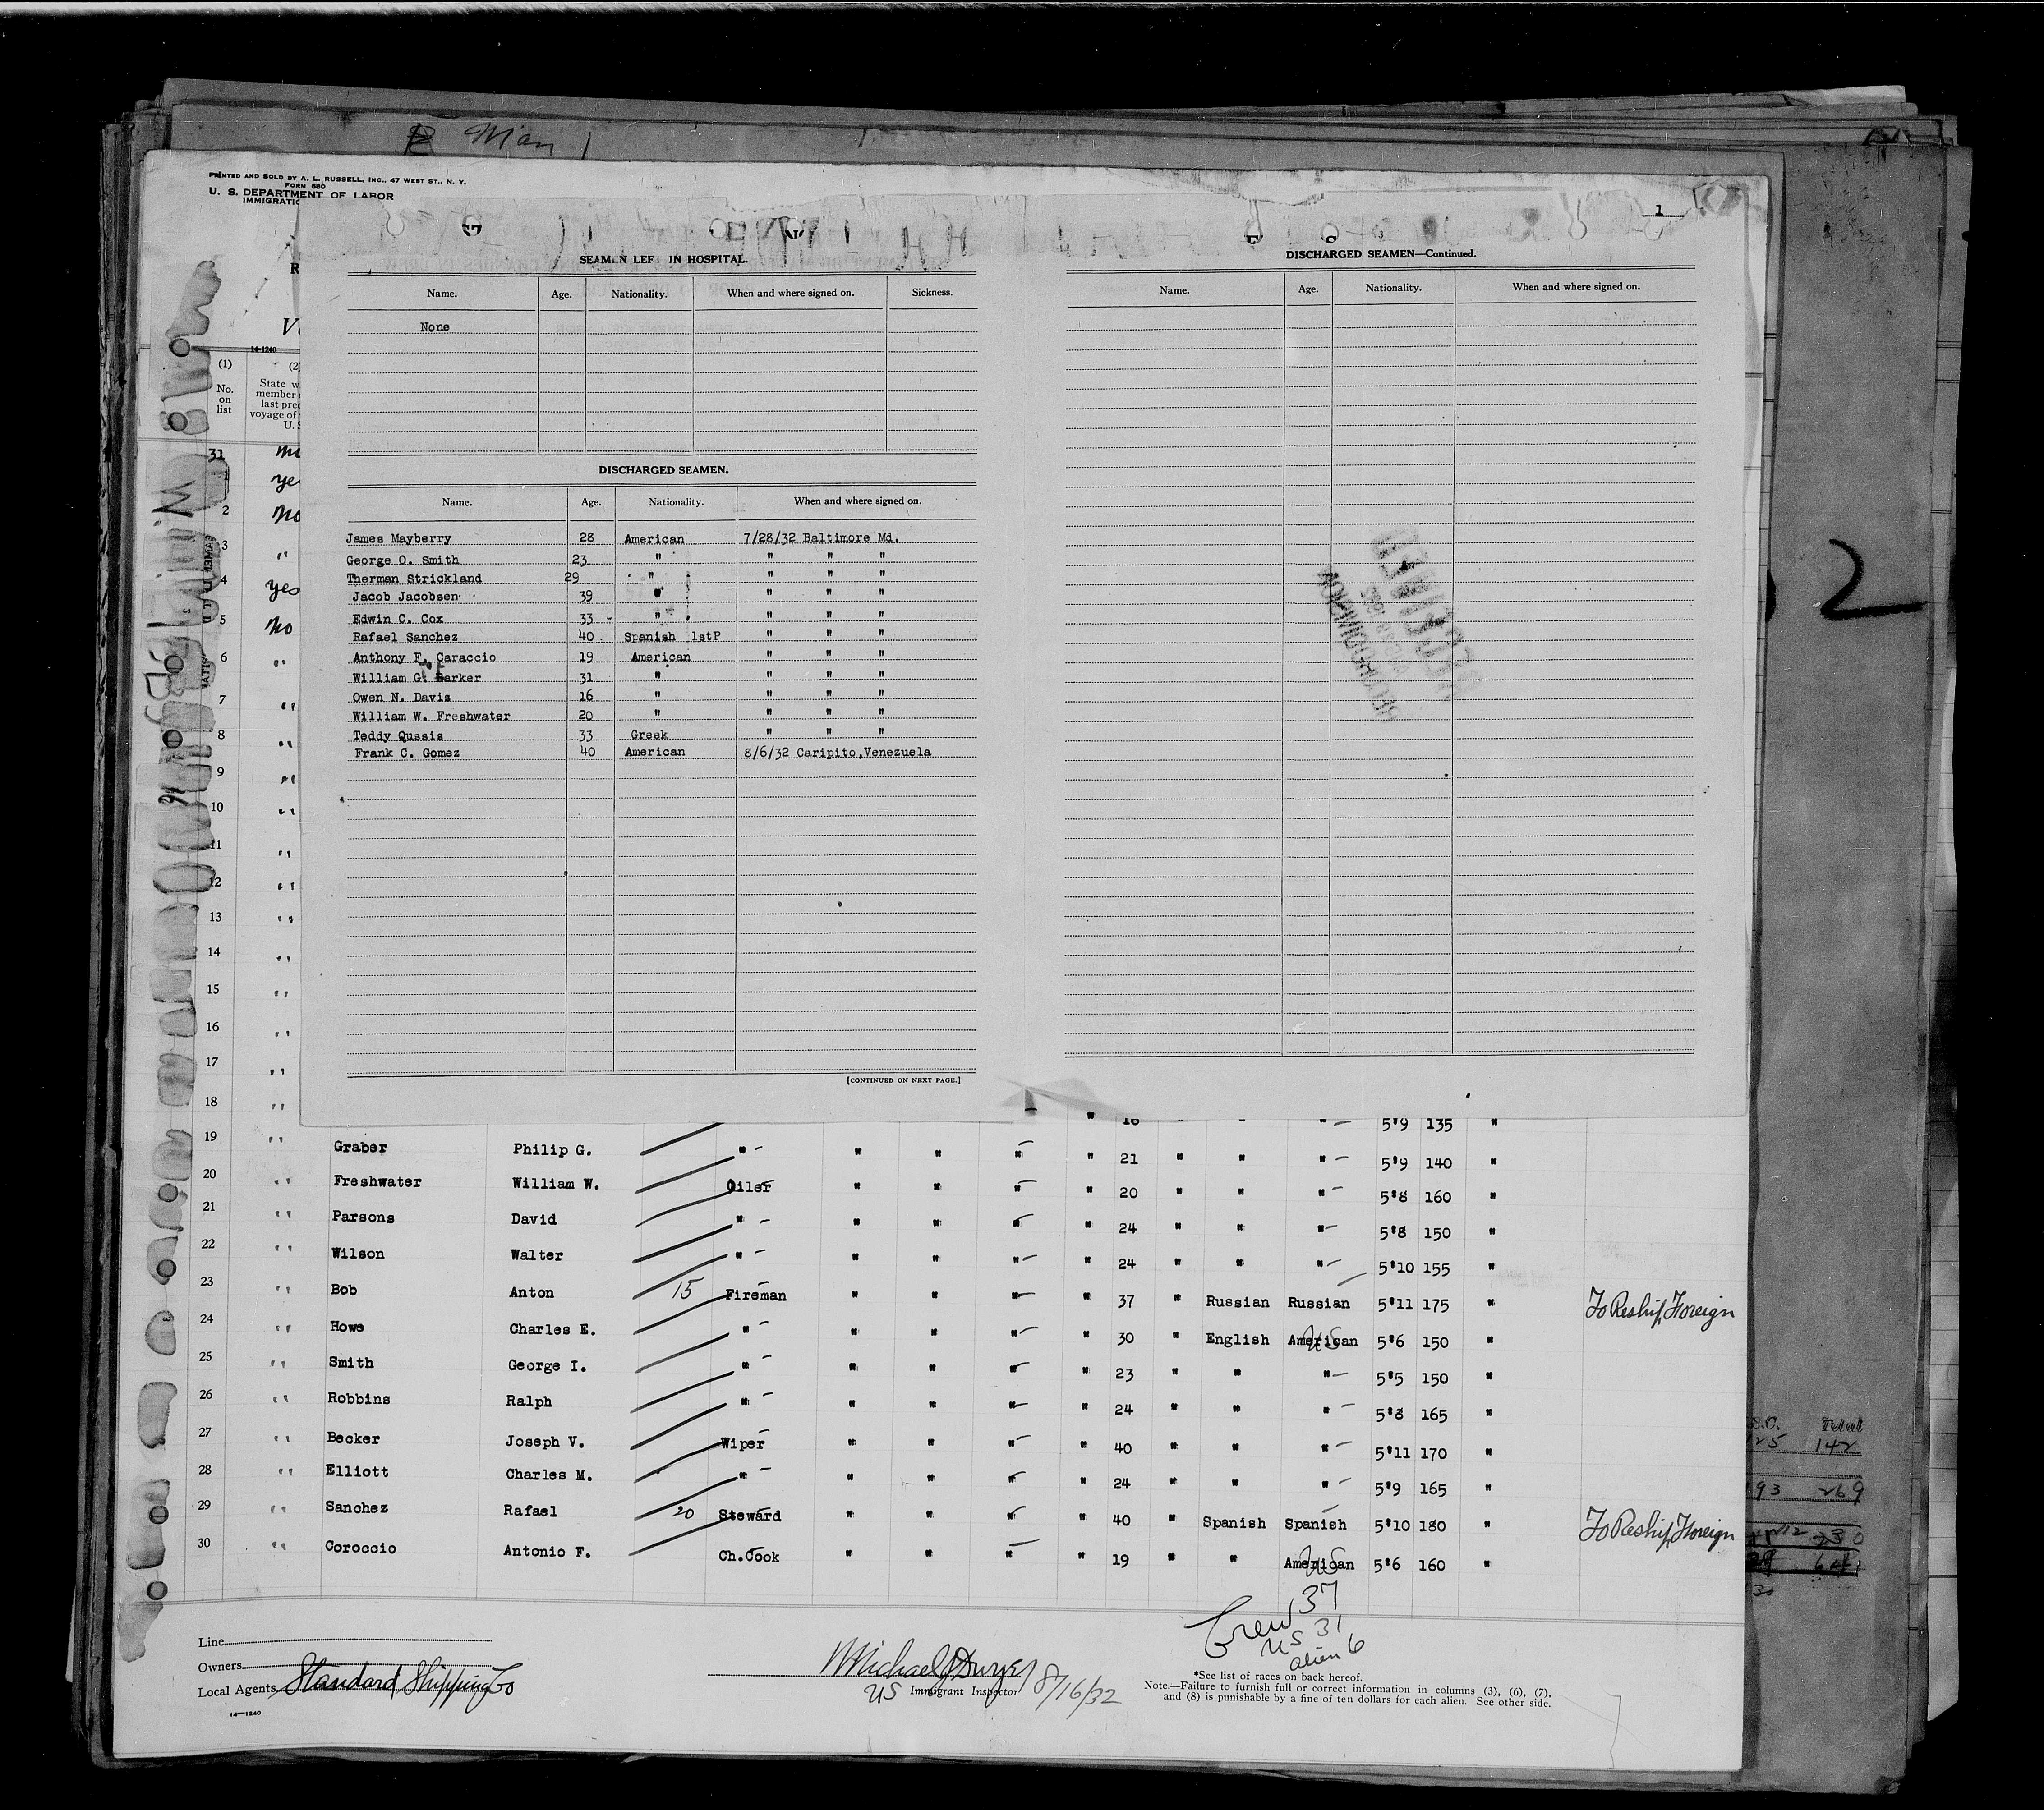 Man 1
PRINTED AND SOLD BY A. L. RUSSELL, INC., 47 WEST ST., N. Y.
FORM 680
U. S. DEPARTMENT OF LABOR
IMMIGRATIO
1
SEAMEN LEF IN HOSPITAL.
Name. Age. Nationality. When and where signed on. Sickness.
None
DISCHARGED SEAMEN.
Name. Age. Nationality. When and where signed on.
James Mayberry 28 American 7/28/32 Baltimore Md.
George O. Smith 23 " " " "
Therman Strickland 29 " " " "
Jacob Jacobsen 39 " " " "
Edwin C. Cox 33 " " " "
Rafael Sanchez 40 Spanish 1stP " " "
Anthony F. Caraccio 19 American " " "
William G. Barker 31 " " " "
Owen N. Davis 16 " " " "
William W. Freshwater 20 " " " "
Teddy Qussis 33 Greek " " "
Frank C. Gomez 40 American 8/6/32 Caripito,Venezuela
[CONTINUED ON NEXT PAGE.]
DISCHARGED SEAMEN—Continued.
Name. Age. Nationality. When and where signed on.
2
14-1240
(1) (2
No. on list
State w
member
last pre
voyage of
U. S
31
1 ye
2 no
3 "
4 yes
5 No
6 "
7 "
8 "
9 "
10 "
11 "
12 "
13 "
14 "
15 "
16 "
17 "
18 " " 18 " " " 5'9 135 "
19 " Graber Philip G. " " " " " 21 " " " 5'9 140 "
20 " Freshwater William W. Oiler " " " " 20 " " " 5'8 160 "
21 " Parsons David " " " " " 24 " " " 5'8 150 "
22 " Wilson Walter " " " " " 24 " " " 5'10 155 "
23 " Bob Anton 15 Fireman " " " " 37 " Russian Russian 5'11 175 " To Reship Foreign
24 " Howe Charles E. " " " " " 30 " English American US 5'6 150 "
25 " Smith George I. " " " " " 23 " " " 5'5 150 "
26 " Robbins Ralph " " " " " 24 " " " 5'8 165 "
27 " Becker Joseph V. Wiper " " " " 40 " " " 5'11 170 "
28 " Elliott Charles M. " " " " " 24 " " " 5'9 165 "
29 " Sanchez Rafael 20 Steward " " " " 40 " Spanish Spanish 5'10 180 " To Reship Foreign
30 " Coroccio Antonio F. Ch.Cook " " " " 19 " " American US 5'6 160 "
Crew 37
US 31
alien 6
Line
Owners
Local Agents Standard Shipping Co
14—1240
Michael J Dwyer
US Immigrant Inspector 8/16/32
*See list of races on back hereof.
Note.—Failure to furnish full or correct information in columns (3), (6), (7),
and (8) is punishable by a fine of ten dollars for each alien. See other side.
Total
25 142
93 269